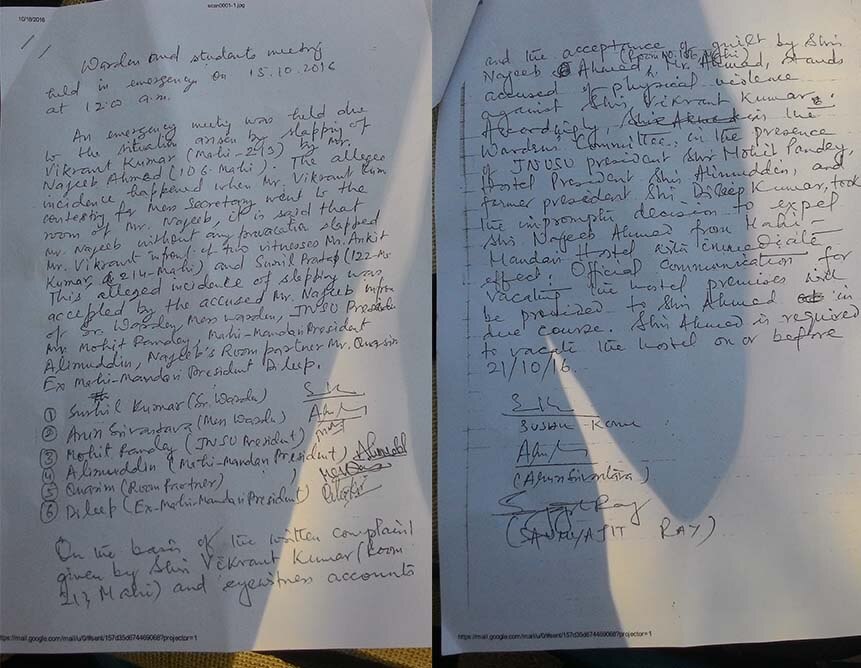 10/18/2016
scan0001-1.jpg
Warden and students meeting
held in emergency on 15.10.2016
at 12:00 a.m.
An emergency meeting was held due
to the situation arisen by slapping of
Vikrant Kumar (Mahi-213) by Mr.
Najeeb Ahmed (106-Mahi). The alleged
incidence happened when Mr. Vikrant Kum
contesting for Mess Secretary went to the
room of Mr. Najeeb, it is said that
Mr. Najeeb without any provocation slapped
Mr. Vikrant infront of two witnesses Mr. Ankit
Kumar (214-Mahi) and Sunil Pratap (122-
This alleged incidence of slapping was
accepted by the accused Mr. Najeeb infron
of Sr. Warden, Mess Warden, JNUSU President
Mr. Mohit Panday, Mahi-Mandavi President
Alimuddin, Najeeb's Room partner Mr. Quasim
Ex Mahi-Mandavi President Dileep.
① Sushil Kumar (Sr. Warden)
② Arun Srivastava (Mess Warden)
③ Mohit Panday (JNSU President)
④ Alimuddin (Mahi-Mandavi President)
⑤ Quasim (Room Partner)
⑥ Dileep (Ex-Mahi-Mandavi President)
On the basis of the written complaint
given by Shri Vikrant Kumar (Room
213, Mahi) and eyewitness accounts
https://mail.google.com/mail/u/0/#sent/157d35d674469068?projector=1
and the acceptance of guilt by Shri
Najeeb Ahmed, (Room No. 106, Mahi)
Mr. Ahmad, stands
accused of physical violence
against Shri Vikrant Kumar.
Accordingly, in the
Wardens' Committee, in the presence
of JNUSU president Shri Mohit Pandey,
Hostel President Shri Alimuddin, and
former president Shri Dileep Kumar, took
the impromptu decision to expel
Shri Najeeb Ahmed from Mahi-
Mandavi Hostel with immediate
effect. Official communication for
vacating the hostel premises will
be provided to Shri Ahmed in
due course. Shri Ahmed is required
to vacate the hostel on or before
21/10/16.
SUSHIL KUMAR
(Arun Srivastava)
(SAUMYAJIT RAY)
https://mail.google.com/mail/u/0/#sent/157d35d674469068?projector=1